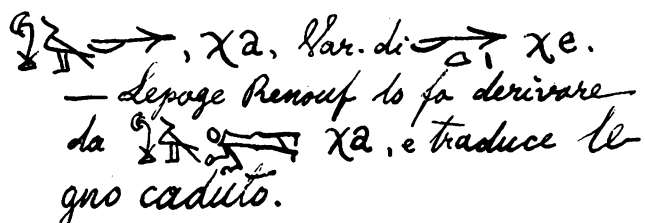 𓆼𓅡𓆱, χa, Var. di 𓆱𓏏𓏤 χe.
— Lepage Renouf lo fa derivare
da 𓆼𓅡 χa, e traduce le-
gno caduto.